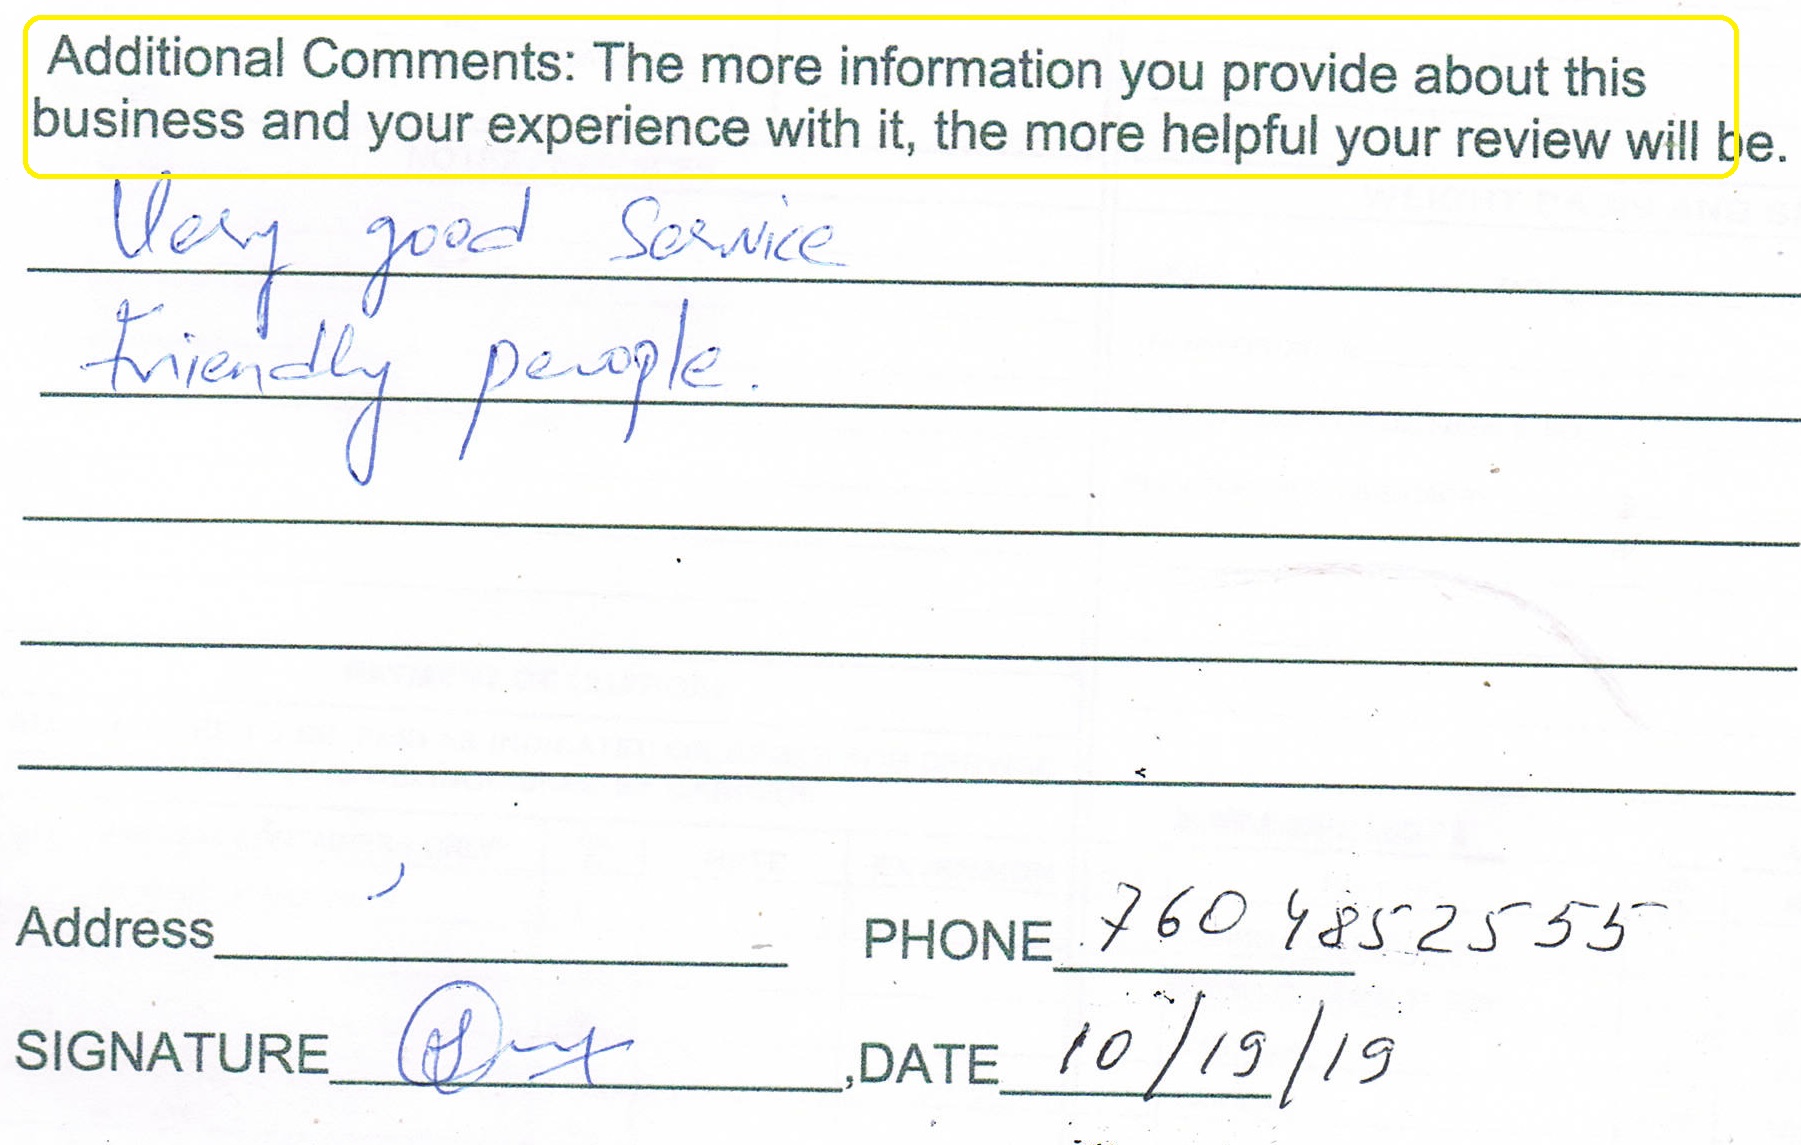 Additional Comments: The more information you provide about this
business and your experience with it, the more helpful your review will be.
Very good Service
Friendly people.
Address
PHONE 760 4852555
SIGNATURE
,DATE 10/19/19